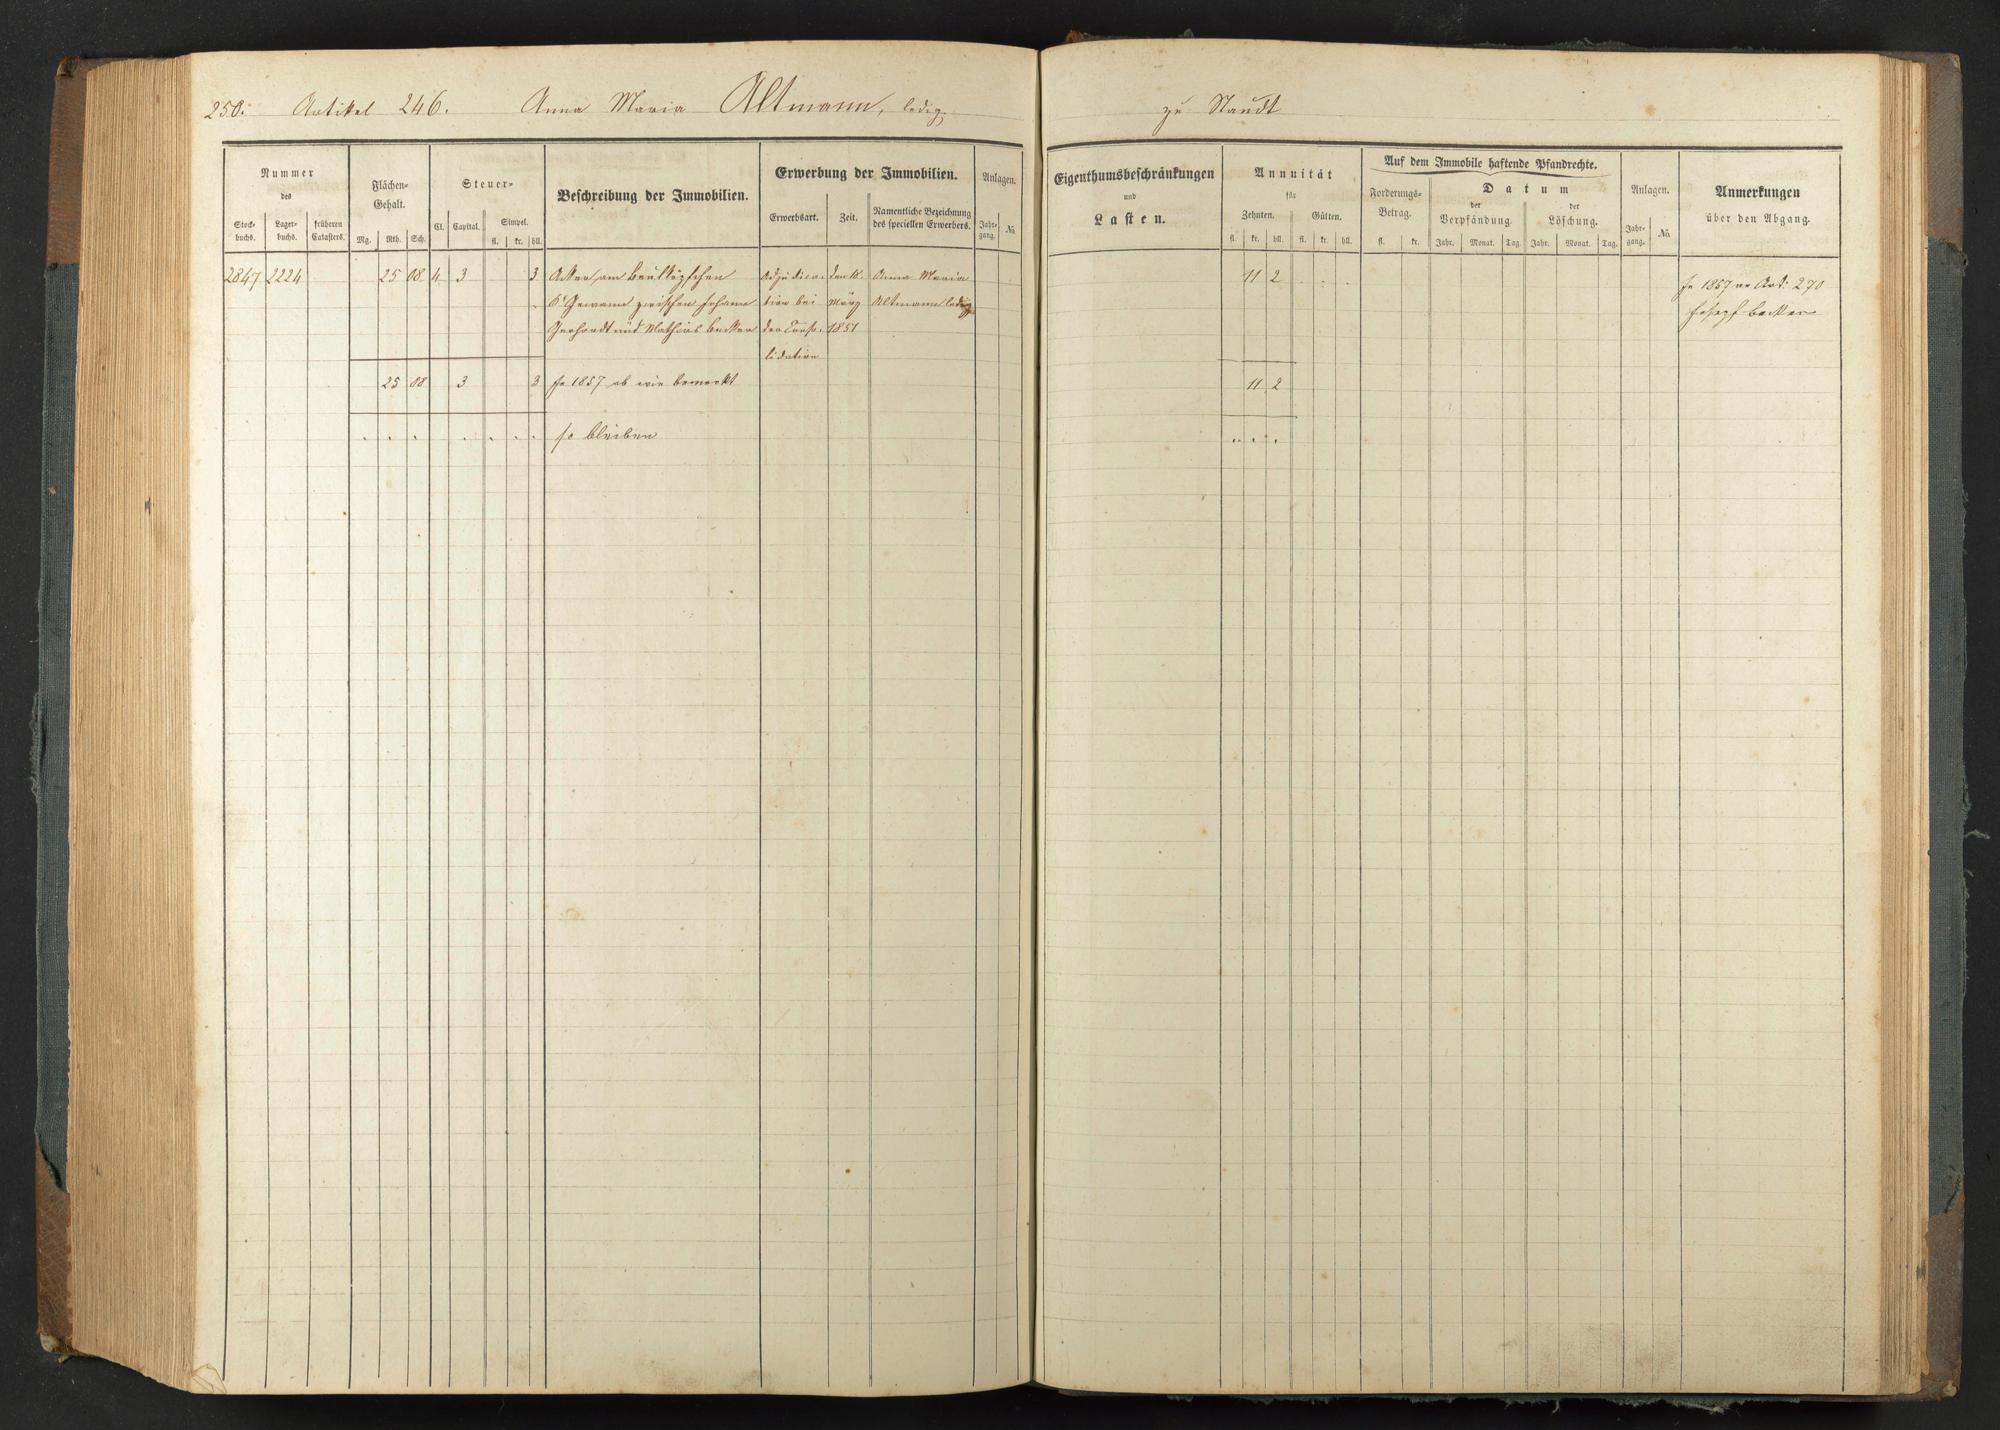 250. Artikel 246. Anna Maria Altmann, ledig,
zu Staudt
Nummer
des
Stock-
buchs.
Lager-
buchs.
früheren
Catasters.
Flächen-
Gehalt.
Mg. Rth. Sch.
Steuer-
Cl. Capital. Simpel.
fl. kr. hll.
Beschreibung der Immobilien.
Erwerbung der Immobilien.
Erwerbsart. Zeit.
Namentliche Bezeichnung
des speciellen Erwerbers.
Anlagen.
Jahr-
gang. No.
Eigenthumsbeschränkungen
und
Lasten.
Annuität
für
Zehnten. Gülten.
fl. kr. hll. fl. kr. hll.
Auf dem Immobile haftende Pfandrechte.
Forderungs-
Betrag.
fl. kr.
Datum
der
Verpfändung.
der
Löschung.
Jahr. Monat. Tag. Jahr. Monat. Tag.
Anlagen.
Jahr-
gang. No.
Anmerkungen
über den Abgang.
2847 2224 25 08 4 3 3 Acker am
6r Gewann zwischen Johann
Gerhardt und Mathias Becker
Adjudica-
tion bei
der Conso-
lidation
den 18.
März
1851
Anna Maria
Altmann ledig
11 2
pr 1857 an Art. 270
Joseph Becker
25 08 3 3 pr 1857 ab wie bemerkt
11 2
so bleiben